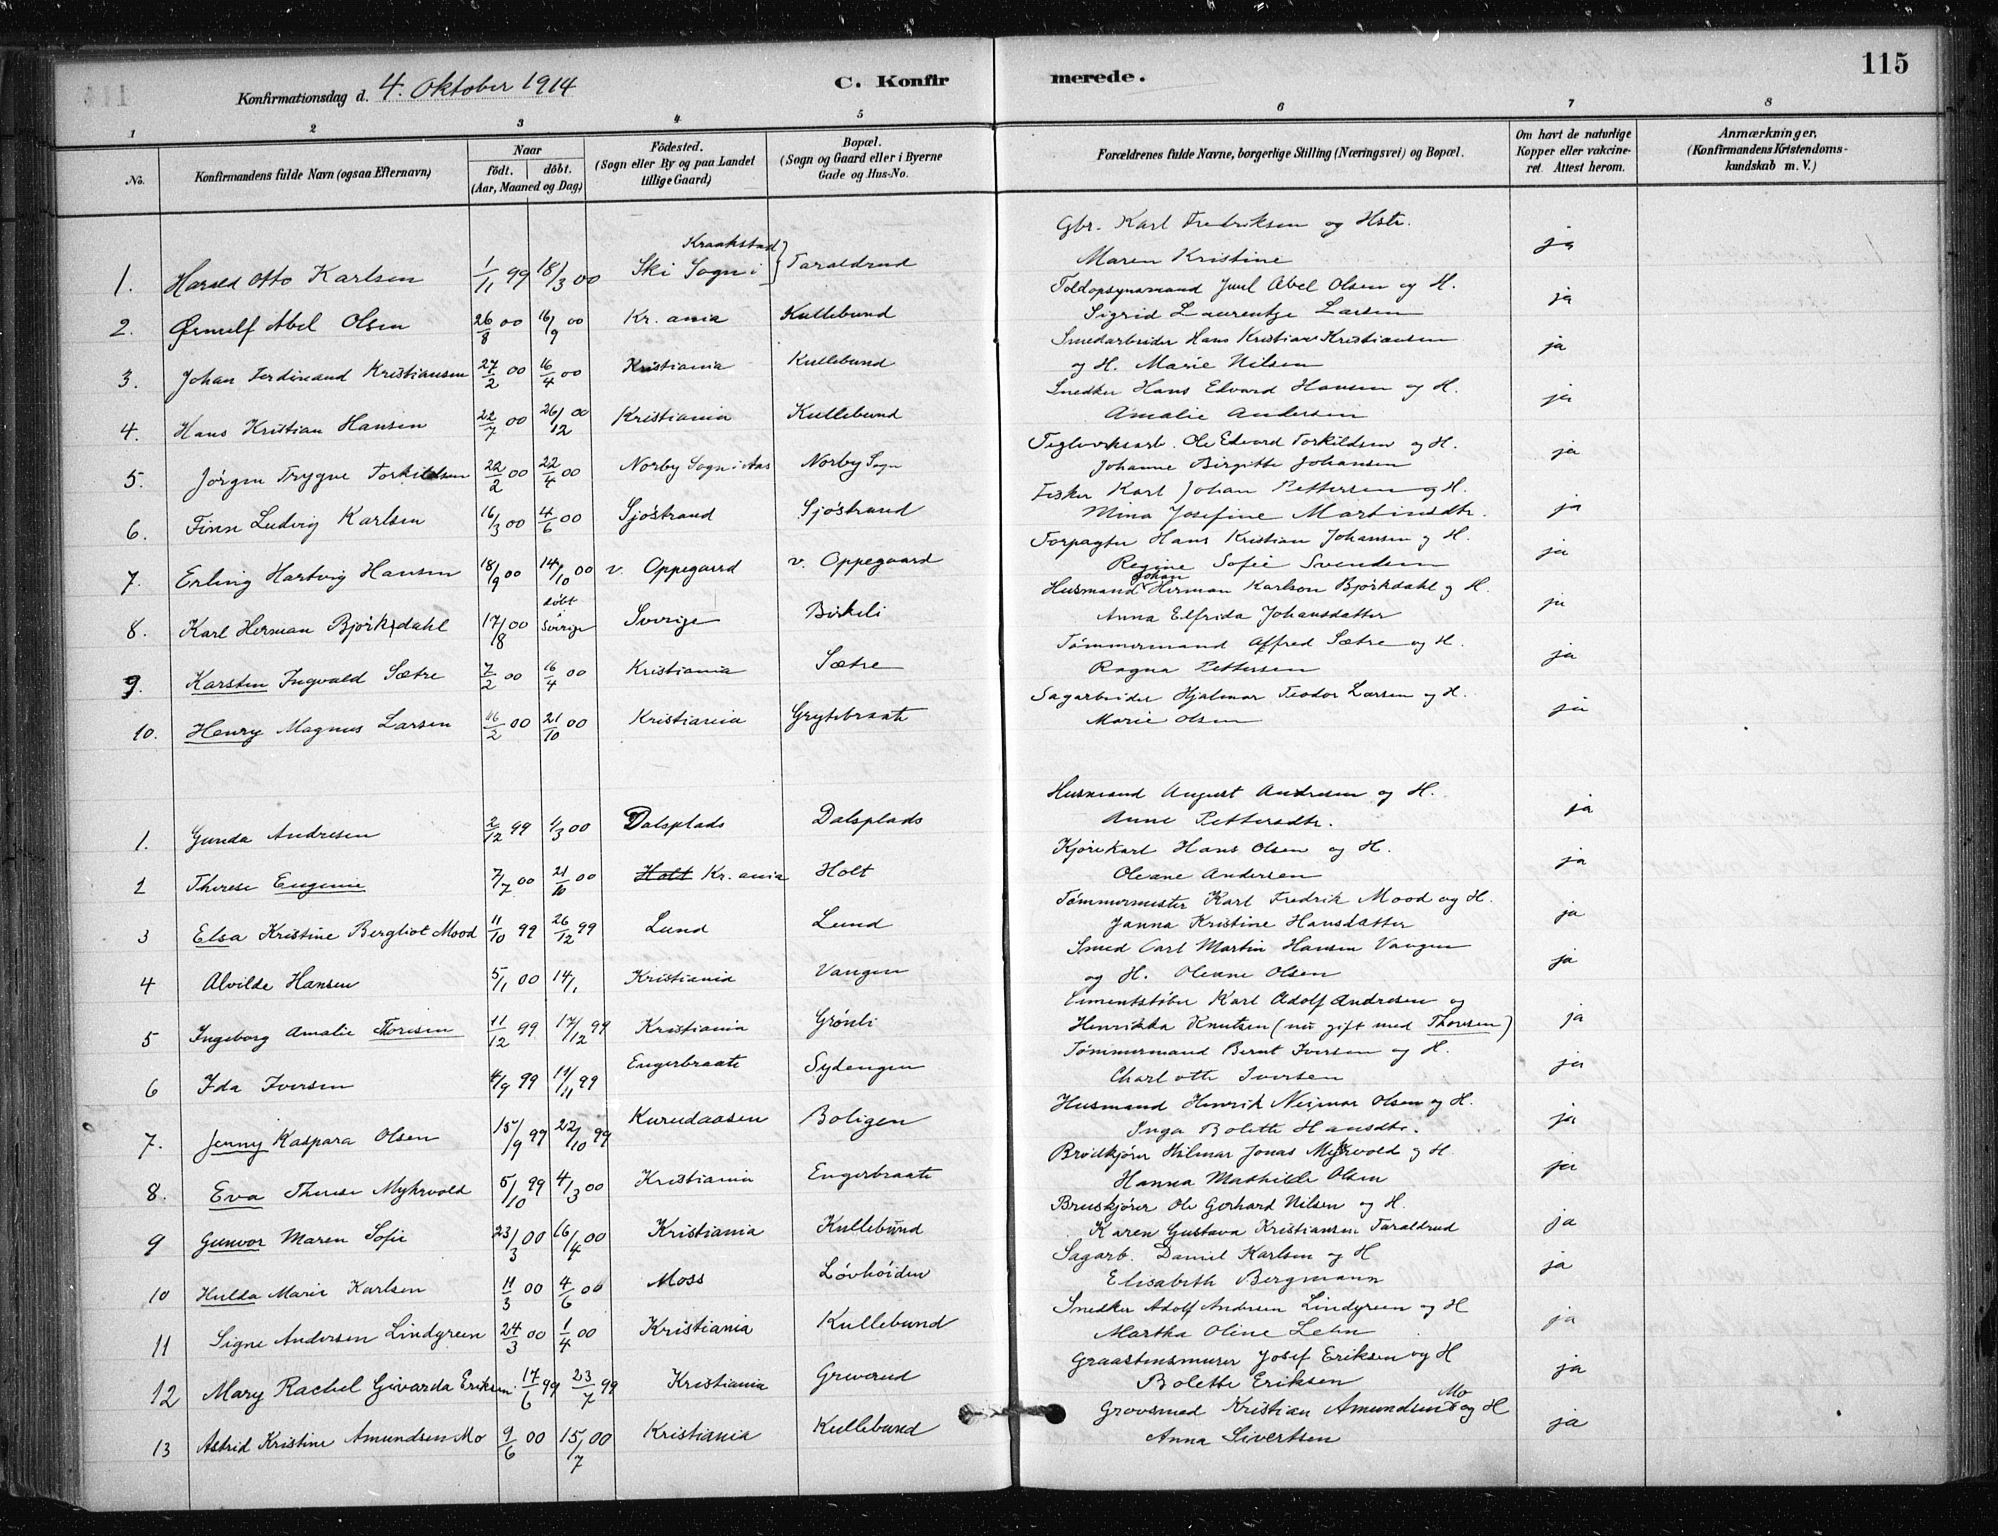 115
Konfirmationsdag d. 4. Oktober 1914
C. Konfirmerede.
1 2 3 4 5 6 7 8
No. Konfirmandens fulde Navn (ogsaa Efternavn) Naar født. døbt. (Aar, Maaned og Dag) Fødested. (Sogn eller By og paa Landet tillige Gaard) Bopæl. (Sogn og Gaard eller i Byerne Gade og Hus-No. Forældrenes fulde Navne, borgerlige Stilling (Næringsvei) og Bopæl. Om havt de naturlige Kopper eller vaccineret. Attest herom. Anmærkninger, (Konfirmandens Kristendomskundskab m. V.)
1. Harald Otto Karlsen 1/11 99 18/3 00 Ski Sogn i Kraakstad Taraldrud Gbr. Karl Fredriksen og Hstr. Maren Kristine ja
2. Ørnulf Abel Olsen 26/8 00 16/9 00 Kr.ania Kullebund Toldopsynsmand Juul Abel Olsen og H. Sigrid Laurentze Larsen ja
3. Johan Ferdinand Kristiansen 27/2 00 16/4 00 Kristiania Kullebund Smedarbeider Hans Kristian Kristiansen og H. Marie Nilsen ja
4. Hans Kristian Hansen 22/7 00 26/12 00 Kristiania Kullebund Snedker Hans Edvard Hansen og H. Amalie Andersen ja
5. Jørgen Trygve Torkildsen 22/2 00 22/4 00 Norby Sogn i Aas Norby Sogn Teglverksarb. Ole Edvard Torkildsen og H. Johanne Birgitte Johansen ja
6. Finn Ludvig Karlsen 16/3 00 4/6 00 Sjøstrand Sjøstrand Fisker Karl Johan Pettersen og H. Mina Josefine Martinsdtr. ja
7. Erling Hartvig Hansen 18/9 00 14/10 00 v. Oppegaard v. Oppegaard Forpagter Hans Kristian Johansen og H. Regine Sofie Svendsen ja
8. Karl Herman Bjørkdahl 17/8 00 døbt i Sverige Sverige Birkeli Husmand Johan Herman Karlson Bjørkdahl og H. Anna Elfrida Johansdatter ja
9. Karsten Ingvald Sætre 7/2 00 16/4 00 Kristiania Sætre Tømmermand Alfred Sætre og H. Ragna Pettersen ja
10. Henry Magnus Larsen 16/2 00 21/10 00 Kristiania Grytebraate Sagarbeider Hjalmar Teodor Larsen og H. Marie Olsen ja
1. Gunda Andresen 2/12 99 4/3 00 Dalsplads Dalsplads Husmand August Andresen og H. Anne Pettersdtr. ja
2 Therese Eugenie 7/7 00 21/10 00 Holt Kr.ania Holt Kjørekarl Hans Olsen og H. Oleane Andersen ja
3 Elsa Kristine Bergliot Mood 11/10 99 26/12 99 Lund Lund Tømmermester Karl Fredrik Mood og H. Janna Kristine Hansdatter ja
4 Alvilde Hansen 5/1 00 14/1 Kristiania Vangen Smed Carl Martin Hansen Vangen og H. Oleane Olsen ja
5 Ingeborg Amalie Thoresen 11/12 99 17/12 99 Kristiania Grønli Cementstøber Karl Adolf Andresen og Henrikka Knutsen (nu gift med Thoresen) ja
6 Ida Iversen 4/9 99 19/11 99 Engerbraate Sydengen Tømmermand Bernt Iversen og H. Charlotte Iversen ja
7. Jenny Kaspara Olsen 15/9 99 22/10 99 Kurudaasen Boligen Husmand Henrik Neimar Olsen og H. Inga Bolette Hansdtr. ja
8. Eva Therese Myhrvold 5/10 99 4/3 00 Kristiania Engerbraate Brødkjører Hilmar Jonas Myhrvold og H. Hanna Mathilde Olsen ja
9 Gunvor Maren Sofie 23/3 00 16/4 00 Kristiania Kullebund Bruskjører Ole Gerhard Nilsen og H. Karen Gustava Kristiansen Taraldrud ja
10 Hulda Marie Karlsen 11/3 00 4/6 00 Moss Løvhøiden Sagarb. Daniel Karlsen og H Elisabeth Bergmann ja
11 Signe Andersen Lindgreen 24/3 00 1/4 00 Kristiania Kullebund Snedker Adolf Andersen Lindgreen og H Martha Oline Lehn ja
12 Mary Rachel Givarda Eriksen 17/6 99 23/7 99 Kristiania Greverud Graastensmurer Josef Eriksen og H Bolette Eriksen ja
13 Astrid Kristine Amundsen Mo 9/6 00 15/7 00 Kristiania Kullebund Grovsmed Kristian Amundsen Mo og H Anna Sivertsen ja